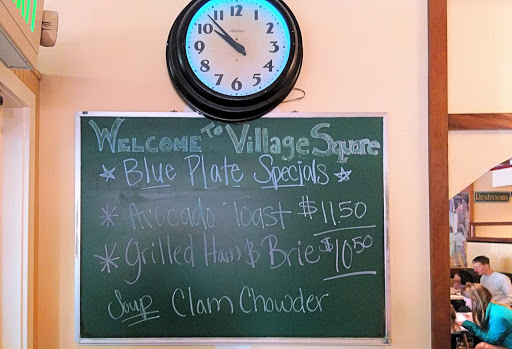 12
11 1
10 2
9 3
8 4
7 5
6
WELCOME To Village Square
Blue Plate Specials
* Avocado Toast $11.50
* Grilled Ham & Brie $10.50
Soup Clam Chowder
Restrooms